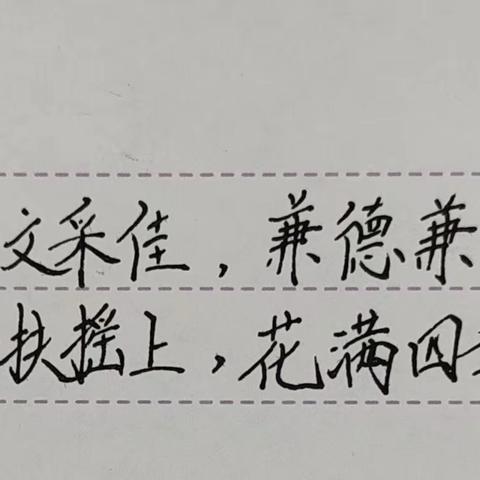 文采佳，兼德兼
扶摇上，花满四